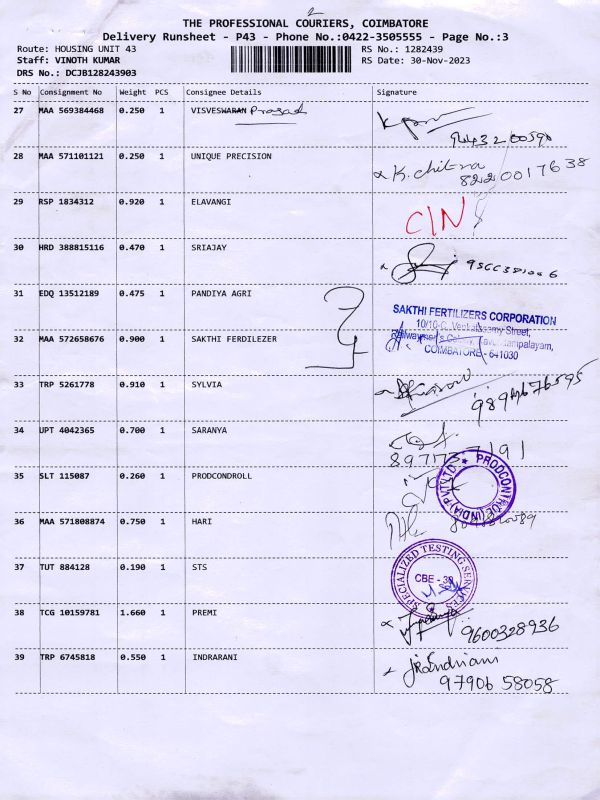 2
THE PROFESSIONAL COURIERS, COIMBATORE
Delivery Runsheet - P43 - Phone No.:0422-3505555 - Page No.:3
Route: HOUSING UNIT 43 RS No.: 1282439
Staff: VINOTH KUMAR RS Date: 30-Nov-2023
DRS No.: DCJB128243903
S No Consignment No Weight PCS Consignee Details Signature
27 MAA 569384468 0.250 1 VISVESWARAN Prasad
28 MAA 571101121 0.250 1 UNIQUE PRECISION K. chitra
8220017638
29 RSP 1834312 0.920 1 ELAVANGI C/N
30 HRD 388815116 0.470 1 SRIAJAY
31 EDQ 13512189 0.475 1 PANDIYA AGRI
SAKTHI FERTILIZERS CORPORATION
10/10-C, Venkatasamy Street,
32 MAA 572658676 0.900 1 SAKTHI FERDILEZER
COIMBATORE - 641030
33 TRP 5261778 0.910 1 SYLVIA
34 UPT 4042365 0.700 1 SARANYA
35 SLT 115087 0.260 1 PRODCONDROLL
36 MAA 571808874 0.750 1 HARI
37 TUT 884128 0.190 1 STS
SPECIALIZED TESTING SERVICES
CBE - 30
38 TCG 10159781 1.660 1 PREMI
9600328936
39 TRP 6745818 0.550 1 INDRARANI
97906 58058